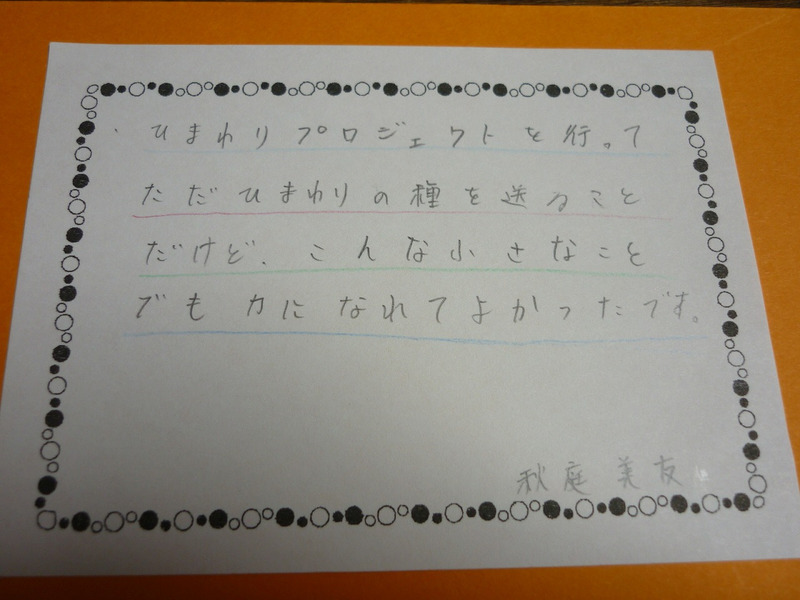 ・ひまわりプロジェクトを行って
ただひまわりの種を送ること
だけど、こんな小さなこと
でも力になれてよかったです。
秋庭美友